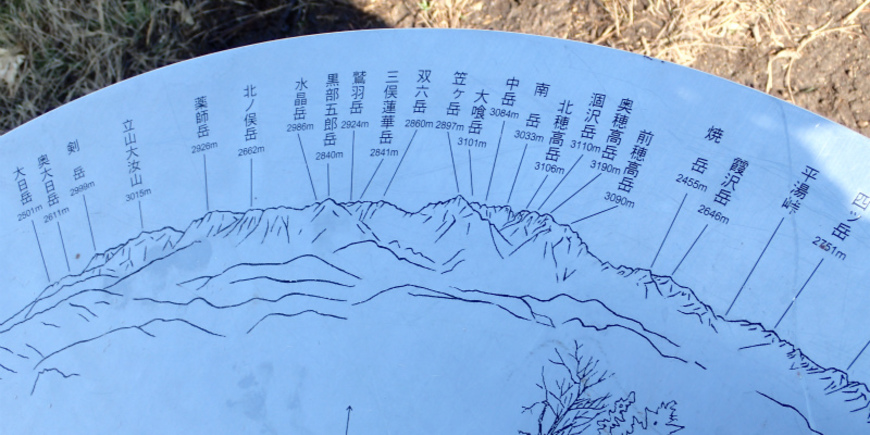 大日岳
2501m
奥大日岳
2611m
剣岳
2999m
立山大汝山
3015m
薬師岳
2926m
北ノ俣岳
2662m
水晶岳
2986m
黒部五郎岳
2840m
鷲羽岳
2924m
三俣蓮華岳
2841m
双六岳
2860m
笠ヶ岳
2897m
大喰岳
3101m
中岳
3084m
南岳
3033m
北穂高岳
3106m
涸沢岳
3110m
奥穂高岳
3190m
前穂高岳
3090m
焼岳
2455m
霞沢岳
2646m
平湯峠
四ッ岳
2751m